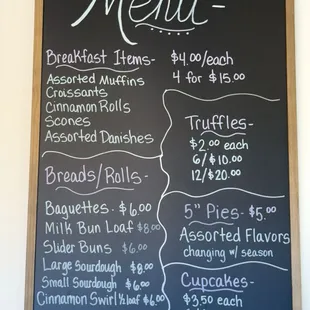 Menu-
Breakfast Items- $4.00/each
4 for $15.00
Assorted Muffins
Croissants
Cinnamon Rolls
Scones
Assorted Danishes
Truffles-
$2.00 each
6/$10.00
12/$20.00
Breads/Rolls-
Baguettes- $6.00
Milk Bun Loaf $8.00
Slider Buns $6.00
Large Sourdough $8.00
Small Sourdough $6.00
Cinnamon Swirl ½ loaf $6.00
5" Pies- $5.00
Assorted Flavors
changing w/ season
Cupcakes-
$3.50 each